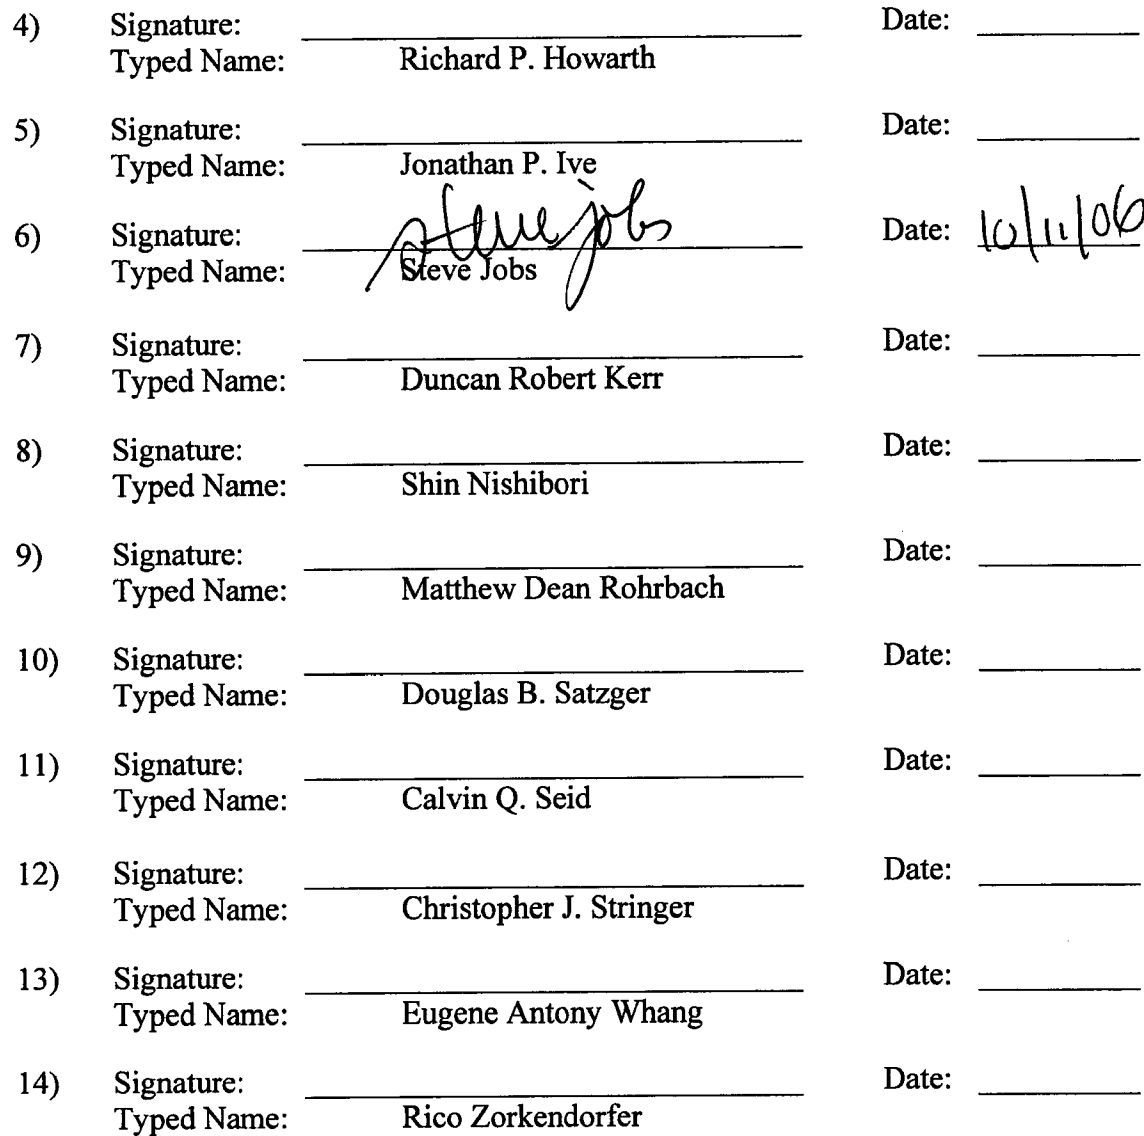 4) Signature: Date:
Typed Name: Richard P. Howarth
5) Signature: Date:
Typed Name: Jonathan P. Ive
6) Signature: steve jobs Date: 10/11/06
Typed Name: Steve Jobs
7) Signature: Date:
Typed Name: Duncan Robert Kerr
8) Signature: Date:
Typed Name: Shin Nishibori
9) Signature: Date:
Typed Name: Matthew Dean Rohrbach
10) Signature: Date:
Typed Name: Douglas B. Satzger
11) Signature: Date:
Typed Name: Calvin Q. Seid
12) Signature: Date:
Typed Name: Christopher J. Stringer
13) Signature: Date:
Typed Name: Eugene Antony Whang
14) Signature: Date:
Typed Name: Rico Zorkendorfer